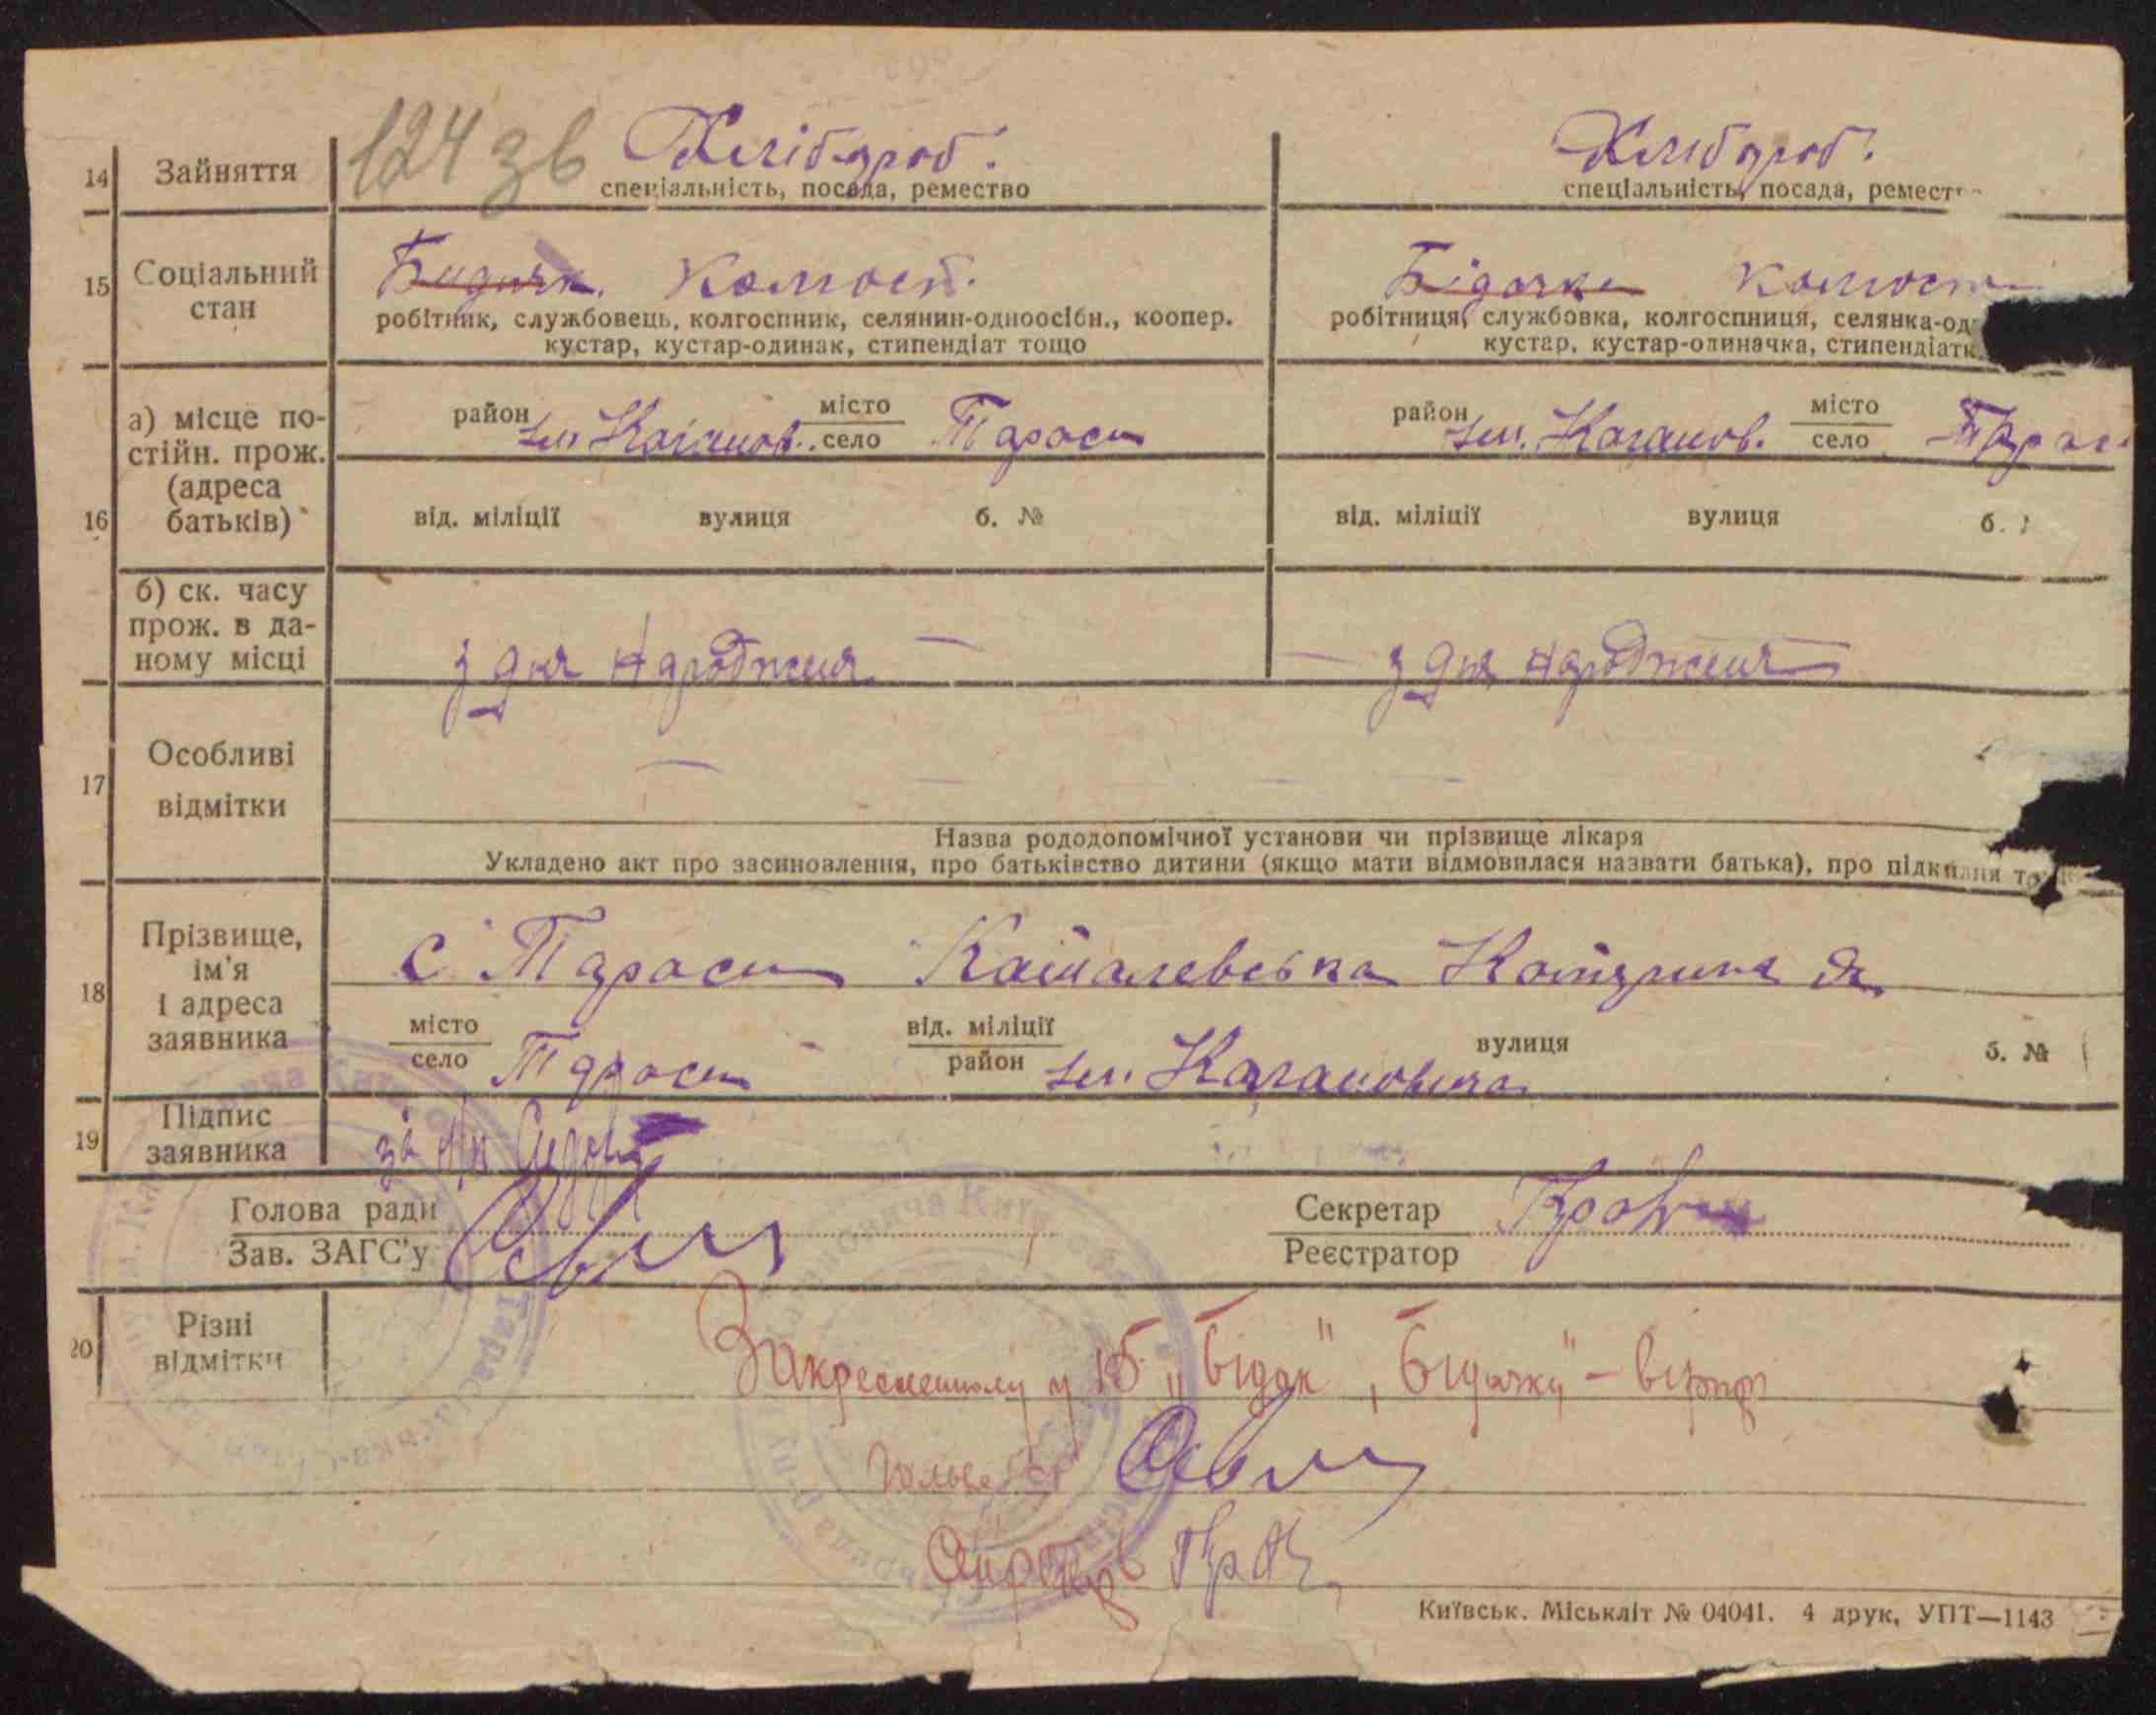 124 зв
14 Зайняття Хлібороб. Хлібороб.
спеціальність, посада, ремество спеціальність, посада, ремест
15 Соціальний стан Бидняк. Колгосп. Бідачка Колгосп
робітник, службовець, колгоспник, селянин-одноосібн., коопер. робітниця, службовка, колгоспниця, селянка-од
кустар, кустар-одинак, стипендіат тощо кустар, кустар-одиначка, стипендіатк
16 а) місце постійн. прож. (адреса батьків) район ім. Каганов. місто село Тараси район ім. Каганов. місто село Тарас
від. міліції вулиця б. № від. міліції вулиця б.
б) ск. часу прож. в даному місці з дня народженя — — з дня народженя —
17 Особливі відмітки
Назва рододопомічної установи чи прізвище лікаря
Укладено акт про засиновлення, про батьківство дитини (якщо мати відмовилася назвати батька), про підкидня то
18 Прізвище, ім'я і адреса заявника с. Тараси Катерина Я.
місто село Тараси від. міліції район ім. Кагановича вулиця б. №
19 Підпис заявника за н/п
Голова ради Зав. ЗАГС'у Секретар Реєстратор
20 Різні відмітки Закресленому у 15 „бідак", „бідачку" – вірити
Голова с/р
Секретар
Київськ. Міськліт № 04041. 4 друк, УПТ—1143